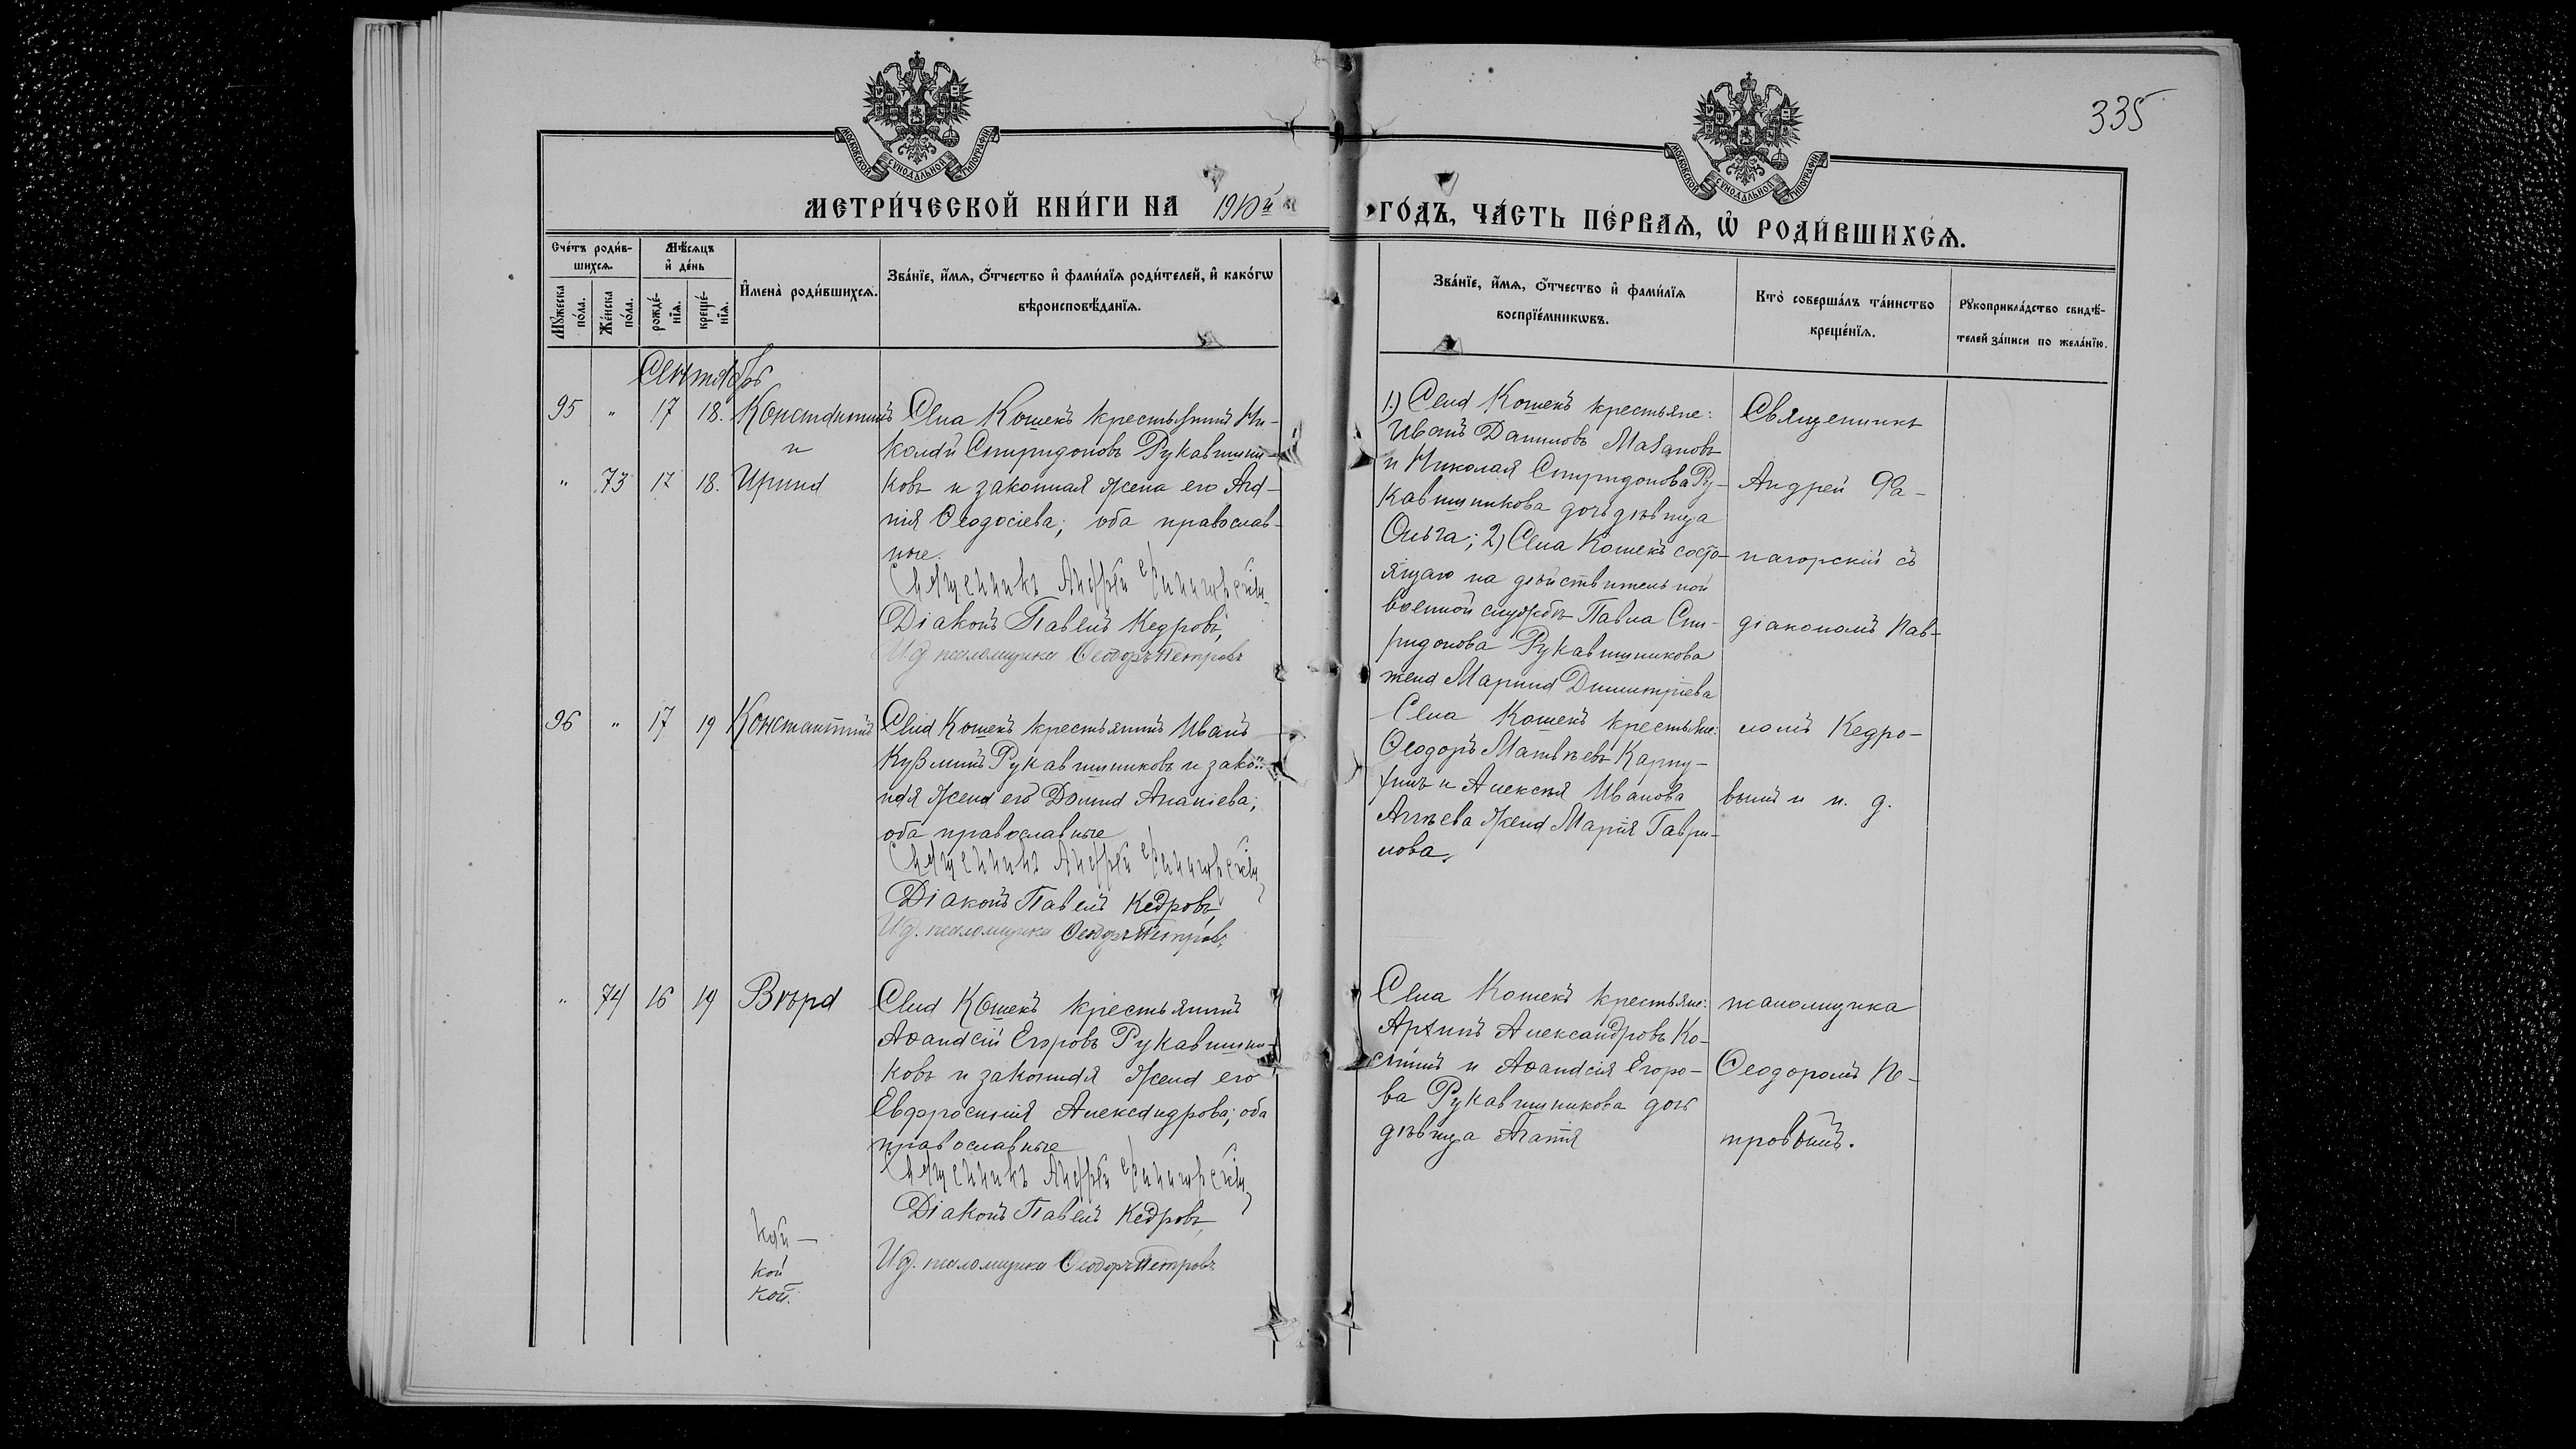 335
МОСКОВСКОЙ СУНОДАЛЬНОЙ ТИПОГРАФІИ
МОСКОВСКОЙ СУНОДАЛЬНОЙ ТИПОГРАФІИ
МЕТРИ́ЧЕСКОЙ КНИ́ГИ НА 1910й
ГО́ДЪ, ЧА́СТЬ ПЕ́РВАѦ, Ѽ РОДИ́ВШИХСѦ.
Сче́тъ роди́в-
шихсѧ.
Мꙋ́жеска по́ла.
Же́нска по́ла.
Мѣ́сѧцъ
и҆ де́нь
рожде́-
нїѧ.
креще́-
нїѧ.
И҆мена̀ роди́вшихсѧ.
Зва́нїе, и҆́мѧ, ѻ҆́тчество и҆ фами́лїѧ роди́телей, и҆ како́гѡ
вѣроисповѣ́данїѧ.
Зва́нїе, и҆́мѧ, ѻ҆́тчество и҆ фами́лїѧ
воспрїе́мникѡвъ.
Кто̀ соверша́лъ та́инство
креще́нїѧ.
Рꙋкоприкла́дство свидѣ́-
телей за́писи по жела́нїю.
Сентябрь
95 " 17 18. Константинъ
и
" 73 17 18. Ирина
Села Кошекъ крестьянинъ Ни-
колай Спиридоновъ Рукавишни-
ковъ и законная жена его Ага-
пія Ѳеодосіева; оба православ-
ные.
Священникъ Андрей Фанагорскій,
Діаконъ Павелъ Кедровъ,
И.д. псаломщика Ѳеодоръ Петровъ
1.) Села Кошекъ крестьяне:
Иванъ Даниловъ Мазановъ
и Николая Спиридонова Ру-
кавишникова дочь дѣвица
Ольга; 2) Села Кошекъ состо-
ящаго на дѣйствительной
военной службѣ Павла Спи-
ридонова Рукавишникова
жена Марина Димитріева
96 " 17 19 Константинъ
Села Кошекъ крестьянинъ Иванъ
Кузминъ Рукавишниковъ и закон-
ная жена его Домна Ананіева;
оба православные
Священникъ Андрей Фанагорскій,
Діаконъ Павелъ Кедровъ,
И.д. псаломщика Ѳеодоръ Петровъ
Села Кошекъ крестьяне:
Ѳеодоръ Матвѣевъ Карпу-
хинъ и Алексѣя Иванова
жена Марія Гаври-
лова.
" 74 16 19 Вѣра
Села Кошекъ крестьянинъ
Аѳанасій Егоровъ Рукавишни-
ковъ и законная жена его
Евфросинія Александрова; оба
православные
Священникъ Андрей Фанагорскій,
Діаконъ Павелъ Кедровъ,
И.д. псаломщика Ѳеодоръ Петровъ
Села Кошекъ крестьяне:
Архипъ Александровъ Ко-
и Аѳанасія Егоро-
ва Рукавишникова дочь
дѣвица Агапія
Священникъ
Андрей Фа-
нагорскій съ
діакономъ Пав-
ломъ Кедро-
вымъ и и. д.
псаломщика
Ѳеодоромъ Пе-
тровымъ.
кой
кой.